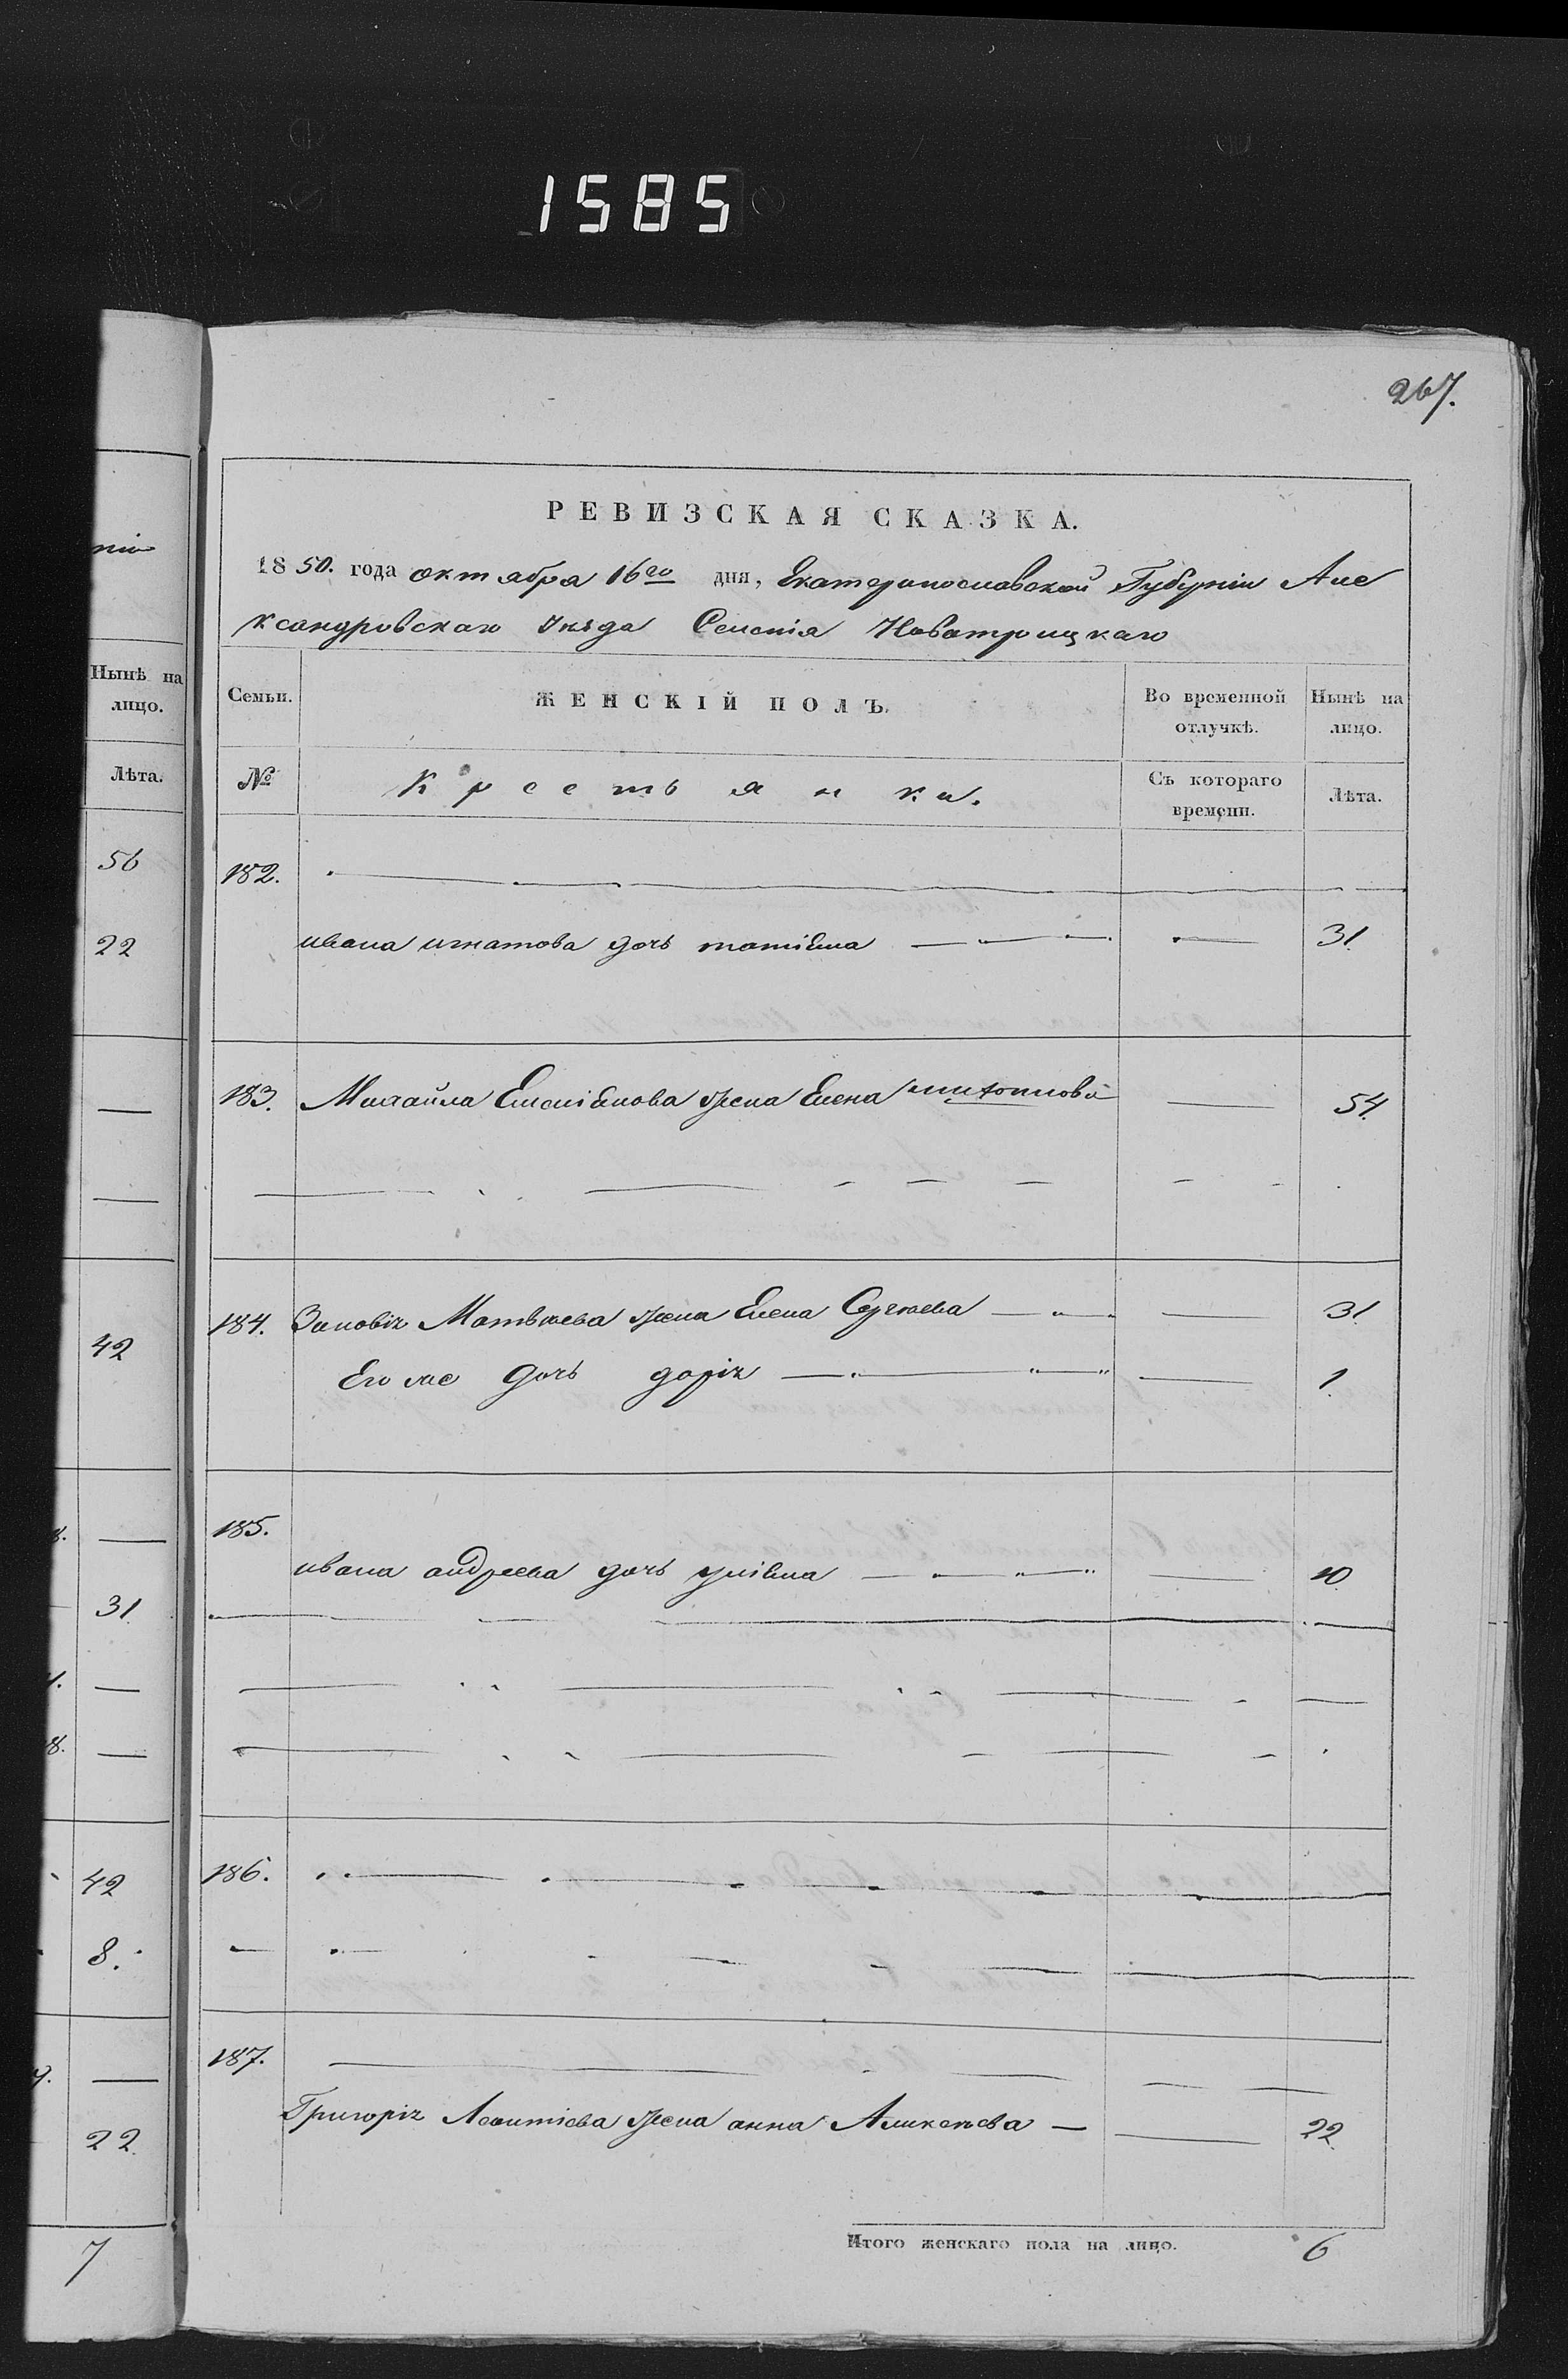 1585
267.
РЕВИЗСКАЯ СКАЗКА.
1850. года октября 16го дня, Екатеринославской Губерніи Але
ксандровскаго Уѣзда Селенія Новатроицкаго
нію
Нынѣ на лицо.
Семьи.
ЖЕНСКІЙ ПОЛЪ.
Во временной отлучкѣ.
Нынѣ на лицо.
Лѣта.
№
Крестьянки.
Съ котораго времени.
Лѣта.
56
182.
22
ивана игнатова дочь татіяна 31.
183. Михайла Емельянова жена Елена 54.
42
184. Зиновія Матвѣева жена Елена Сергѣева 31
Его же дочь дарія 1.
185.
31.
ивана андреева дочь уліяна 10.
42
186.
8.
187.
22.
Григорія Леонтіева жена анна Аликсѣева 22.
7
Итого женскаго пола на лицо. 6